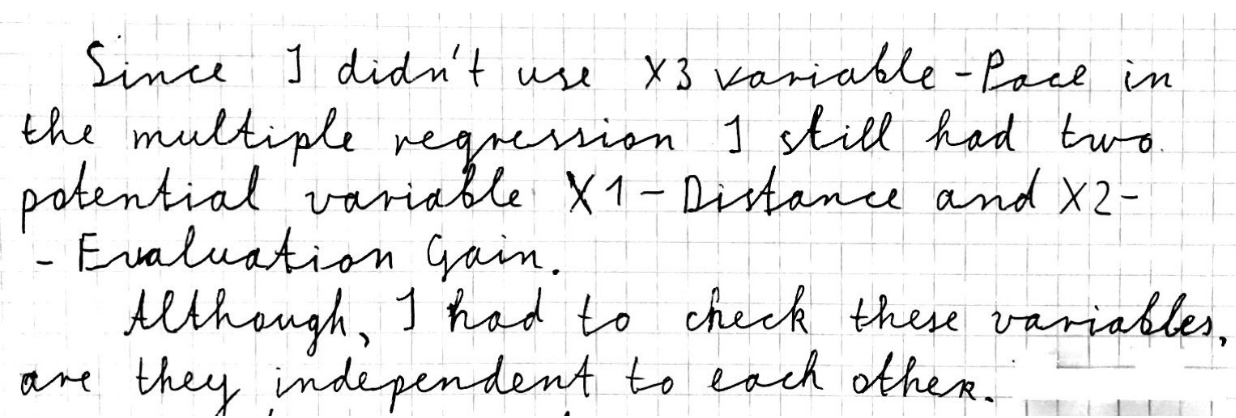 Since I didn't use X3 variable - Pace in
the multiple regression I still had two
potential variable X1 - Distance and X2 -
- Evaluation Gain.
Although, I had to check these variables,
are they independent to each other.